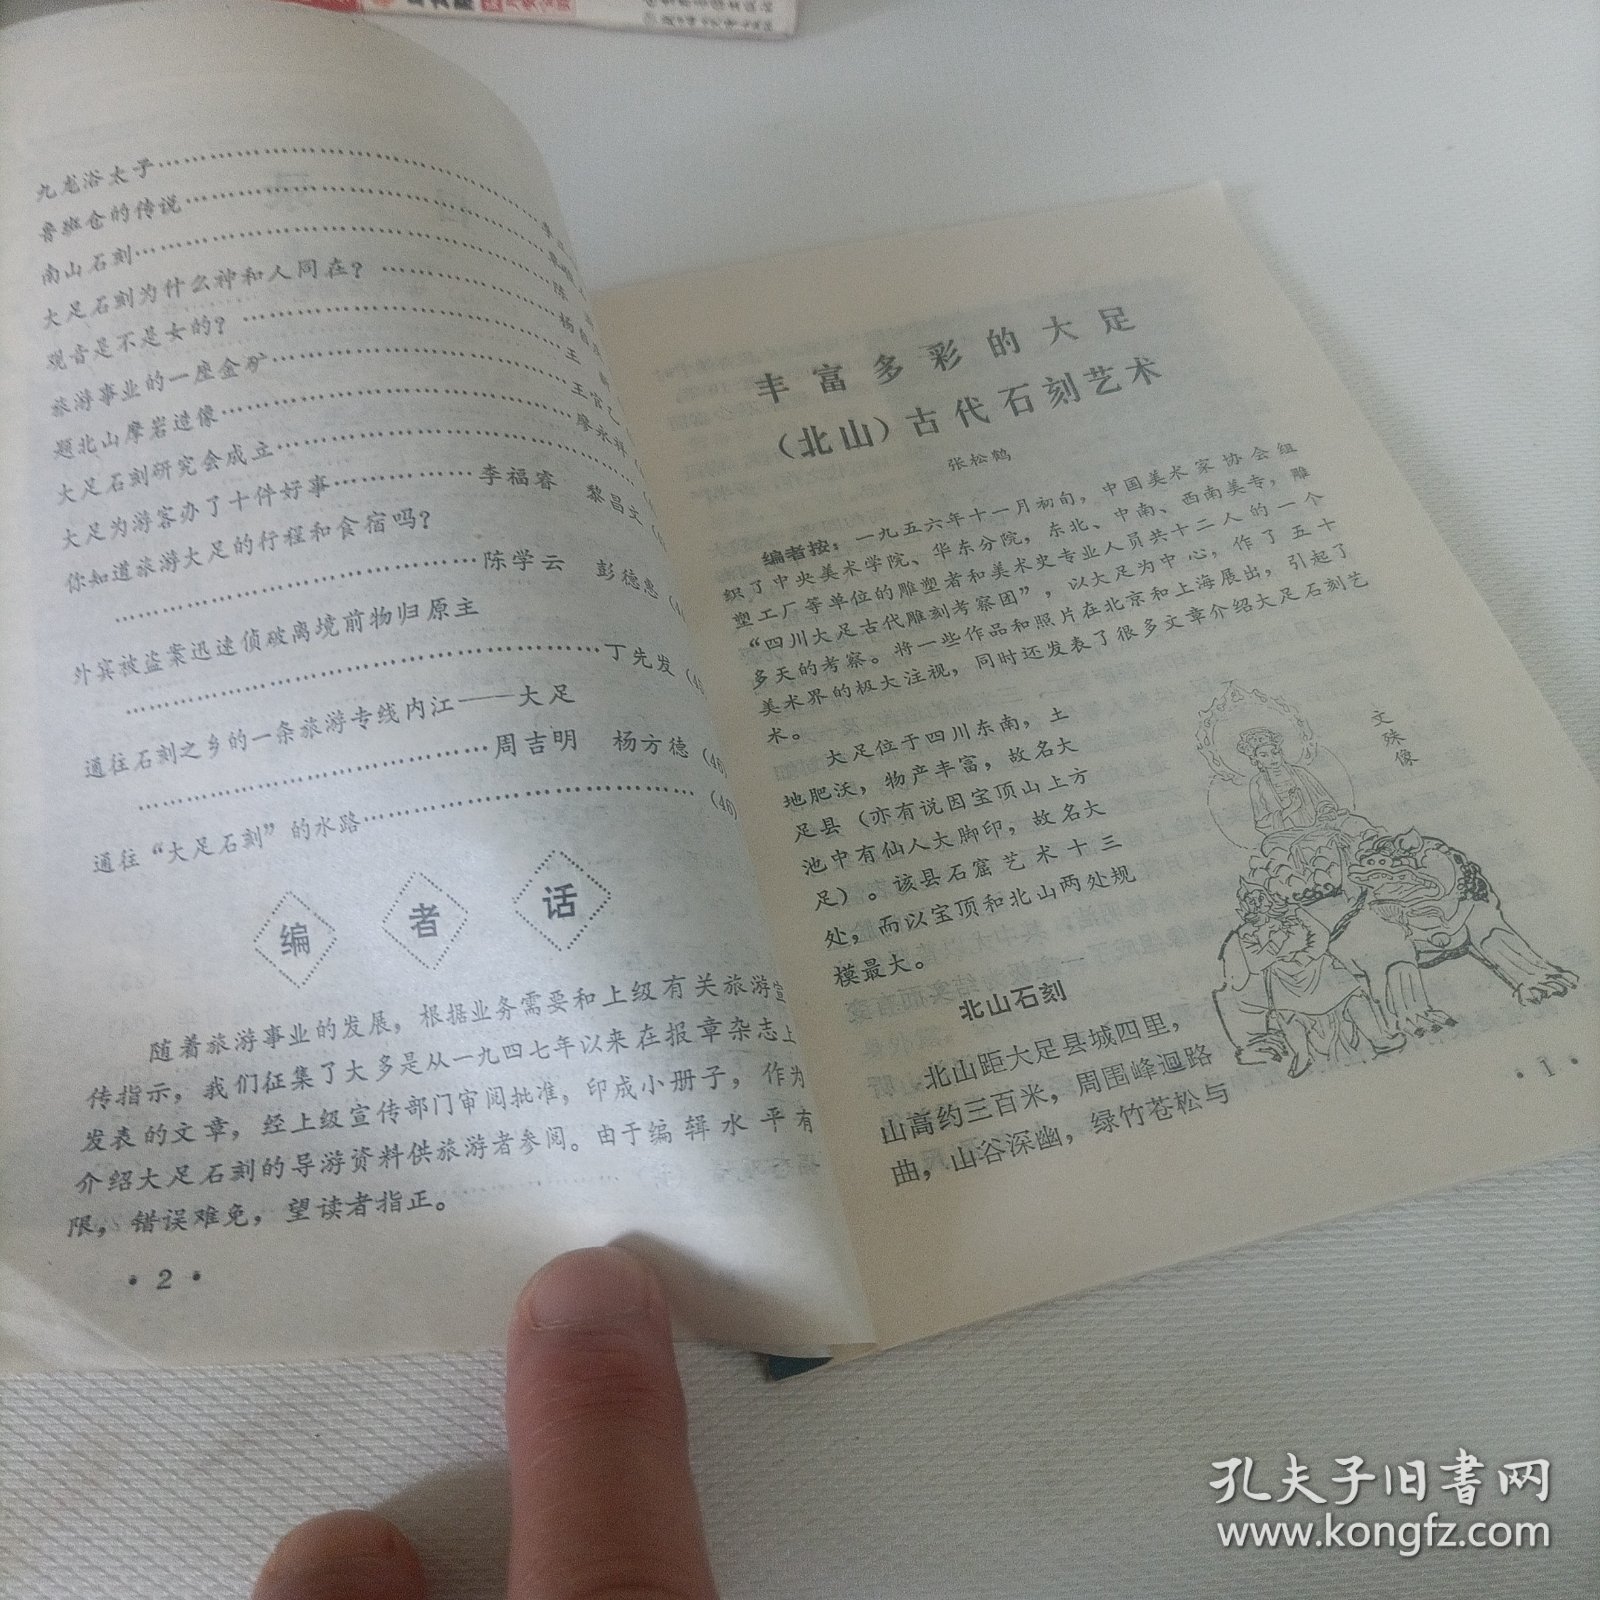 九龙浴太子
鲁班仓的传说
南山石刻
大足石刻为什么神和人同在？
观音是不是女的？
旅游事业的一座金矿
题北山摩岩造像
大足石刻研究会成立
大足为游客办了十件好事 李福睿 黎昌文
你知道旅游大足的行程和食宿吗？
陈学云 彭德惠
外宾被盗案迅速侦破离境前物归原主
丁先发
通往石刻之乡的一条旅游专线内江——大足
周吉明 杨方德 (46)
通往“大足石刻”的水路 (46)
编者话
随着旅游事业的发展，根据业务需要和上级有关旅游宣
传指示，我们征集了大多是从一九四七年以来在报章杂志上
发表的文章，经上级宣传部门审阅批准，印成小册子，作为
介绍大足石刻的导游资料供旅游者参阅。由于编辑水平有
限，错误难免，望读者指正。
· 2 ·
丰富多彩的大足
（北山）古代石刻艺术
张松鹤
编者按：一九五六年十一月初旬，中国美术家协会组
织了中央美术学院、华东分院，东北、中南、西南美专，雕
塑工厂等单位的雕塑者和美术史专业人员共十二人的一个
“四川大足古代雕刻考察团”，以大足为中心，作了五十
多天的考察。将一些作品和照片在北京和上海展出，引起了
美术界的极大注视，同时还发表了很多文章介绍大足石刻艺
术。
大足位于四川东南，土
地肥沃，物产丰富，故名大
足县（亦有说因宝顶山上方
池中有仙人大脚印，故名大
足）。该县石窟艺术十三
处，而以宝顶和北山两处规
模最大。
文殊像
北山石刻
北山距大足县城四里，
山高约三百米，周围峰迴路
曲，山谷深幽，绿竹苍松与
· 1 ·
孔夫子旧书网
www.kongfz.com